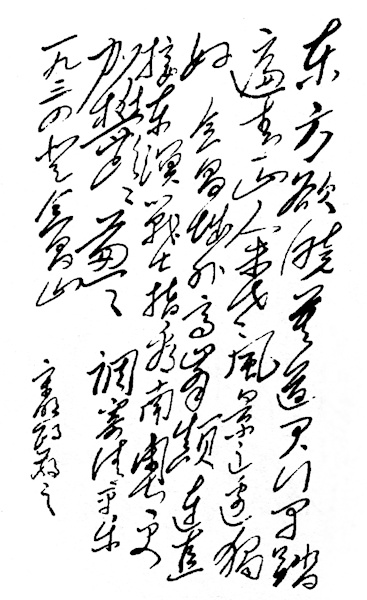 东方欲晓莫道君行早踏
遍青山人未老風景这边独
好 会昌城外高峰颠连直
接东溟戰士指看南粤更
加鬱々葱々 調寄清平乐
一九三四登会昌山